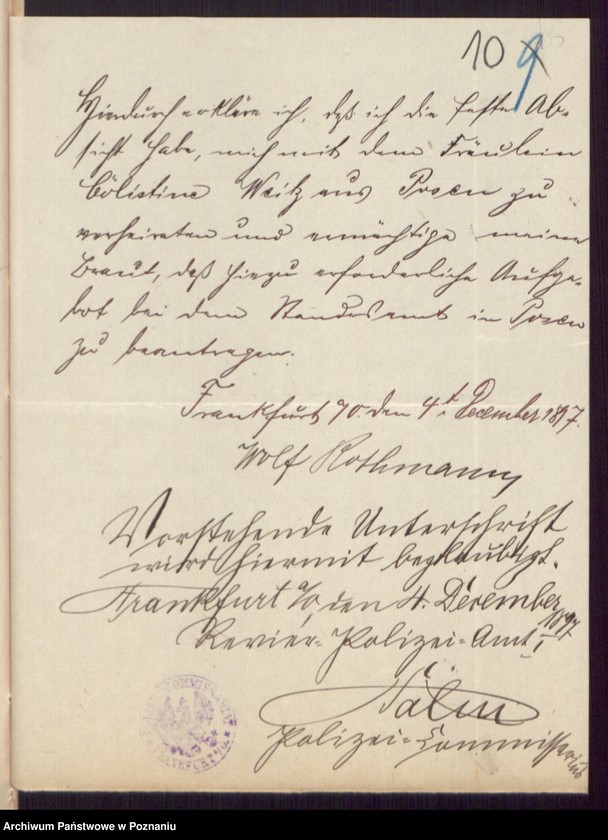 10 9
Hierdurch erkläre ich, daß ich die feste Ab-
sicht habe, mich mit dem Fräulein
Cölestine Weitz aus Posen zu
verheiraten und ermächtige meine
Braut, das hiezu erforderliche Aufge-
bot bei dem Standesamt in Posen
zu beantragen.
Frankfurt a/O. den 4t. December 1897.
Wolf Rothmann
Vorstehende Unterschrift
wird hiermit beglaubigt.
Frankfurt a/O den 4. December
1897
Revier-Polizei-Amt I.
Polizei-Commissarius
Archiwum Państwowe w Poznaniu